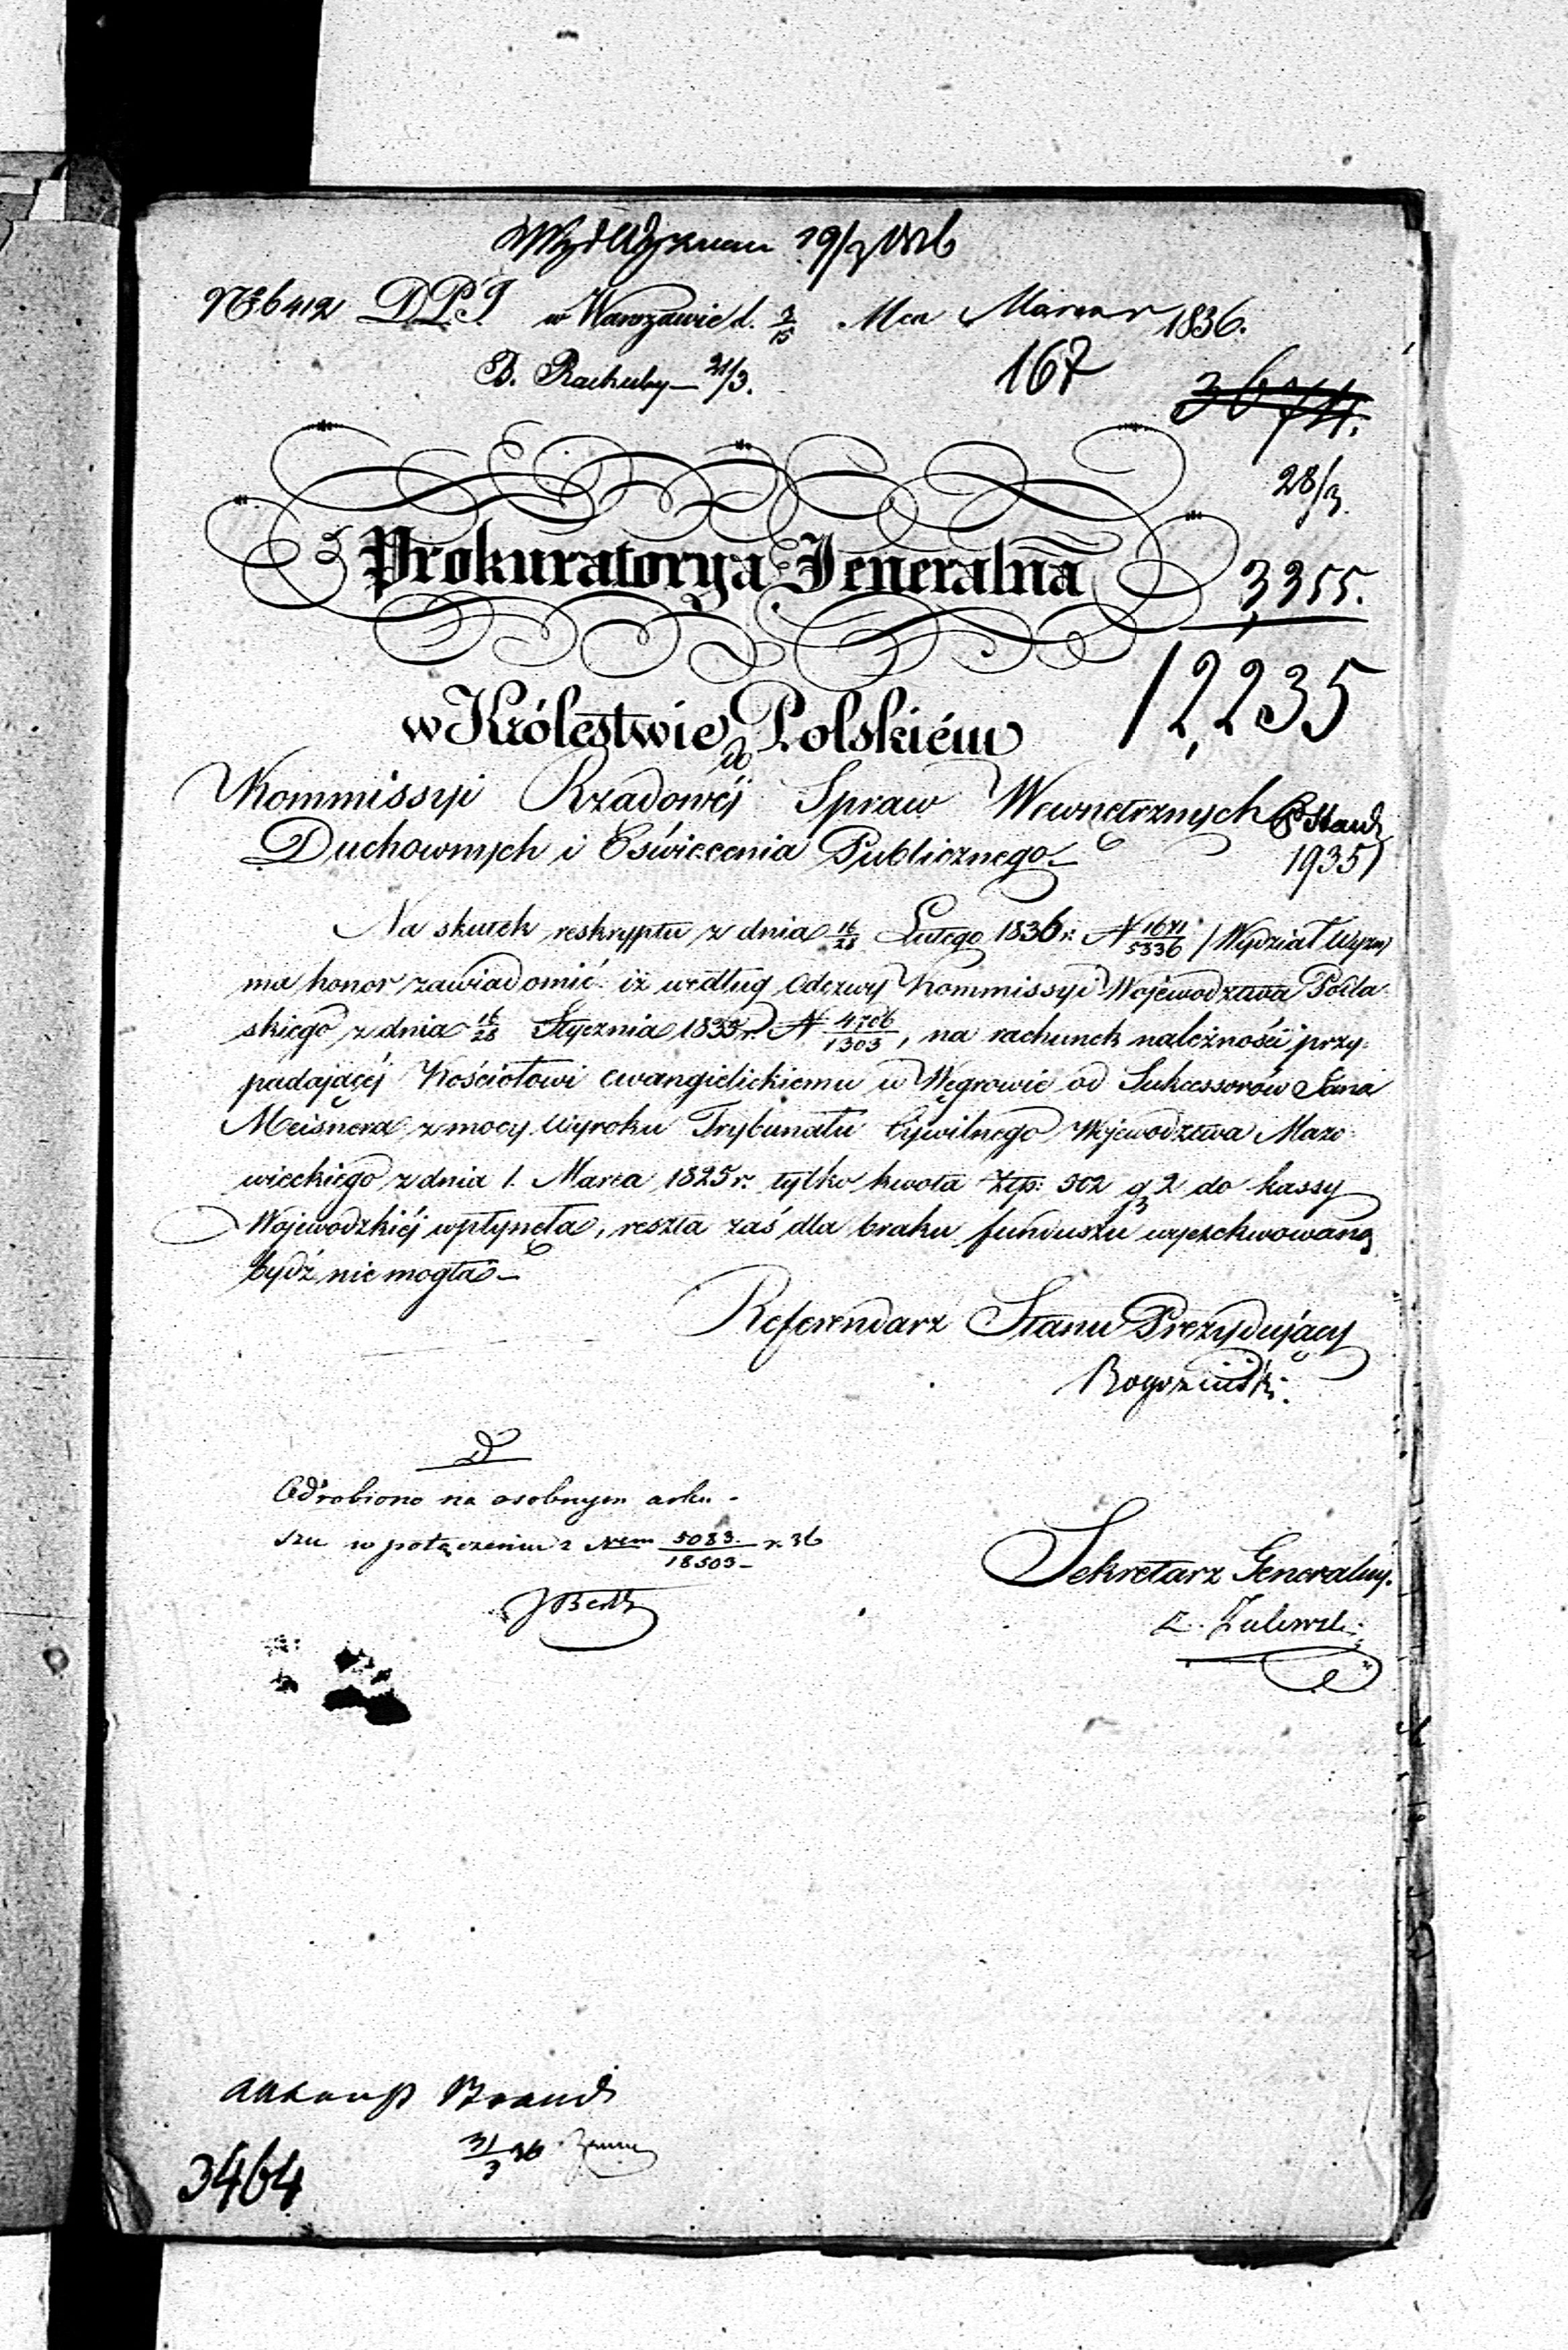 19/3 1836
№ 6412 D.P.J. w Warszawie d. 3/15 Mca Marca 1836.
B. Rachuby 21/3.
167
3674.
28/3.
Prokuratorya Jeneralna
3,355.
12,235
w Królestwie Polskiém
do
Kommissyi Rządowéj Spraw Wewnętrznych
Duchownych i Oświecenia Publicznego
1935
Na skutek reskryptu z dnia 16/28 Lutego 1836 r. N 1671/5336 / Wydział Wyzn/
ma honor zawiadomić iż według Odezwy Kommissyi Wojewodztwa Podla-
skiego z dnia 16/28 Stycznia 1835 r. N 4706/1303, na rachunek należności przy-
padającéj Kościołowi ewangielickiemu w Węgrowie od Sukcessorów Jana
Meisnera z mocy Wyroku Trybunału Cywilnego Wojewodztwa Mazo-
wieckiego z dnia 1. Marca 1825 r. tylko kwota Złp: 502 g 2 do kassy
Wojewodzkiéj wpłynęła, reszta zaś dla braku funduszu wyexekwowaną
bydź nie mogła
Referendarz Stanu Prezydujący
Rogoziński
D
Odrobiono na osobnym arku-
szu w połączeniu z Nrem 5083/18503 r. 36
Sekretarz Generalny.
Z. Zalewski
31/3 36
3464